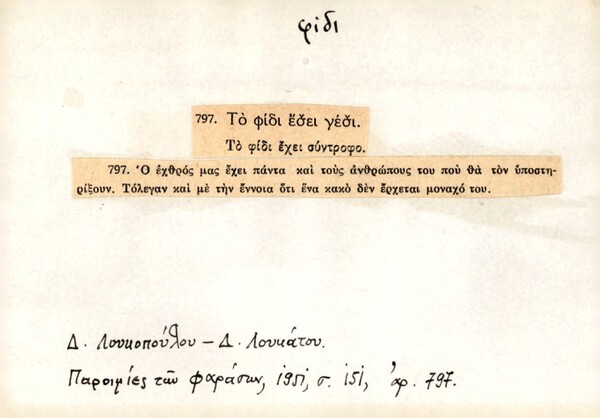 φίδι
797. Τὸ φίδι ἔσει γέσι.
Τὸ φίδι ἔχει σύντροφο.
797. Ὁ ἐχθρός μας ἔχει πάντα καὶ τοὺς ἀνθρώπους του ποὺ θὰ τὸν ὑποστη-
ρίξουν. Τόλεγαν καὶ μὲ τὴν ἔννοια ὅτι ἕνα κακὸ δὲν ἔρχεται μοναχό του.
Δ. Λουκοπούλου – Δ. Λουκάτου.
Παροιμίες τῶν Φαράσων, 1951, σ. 151, ἀρ. 797.